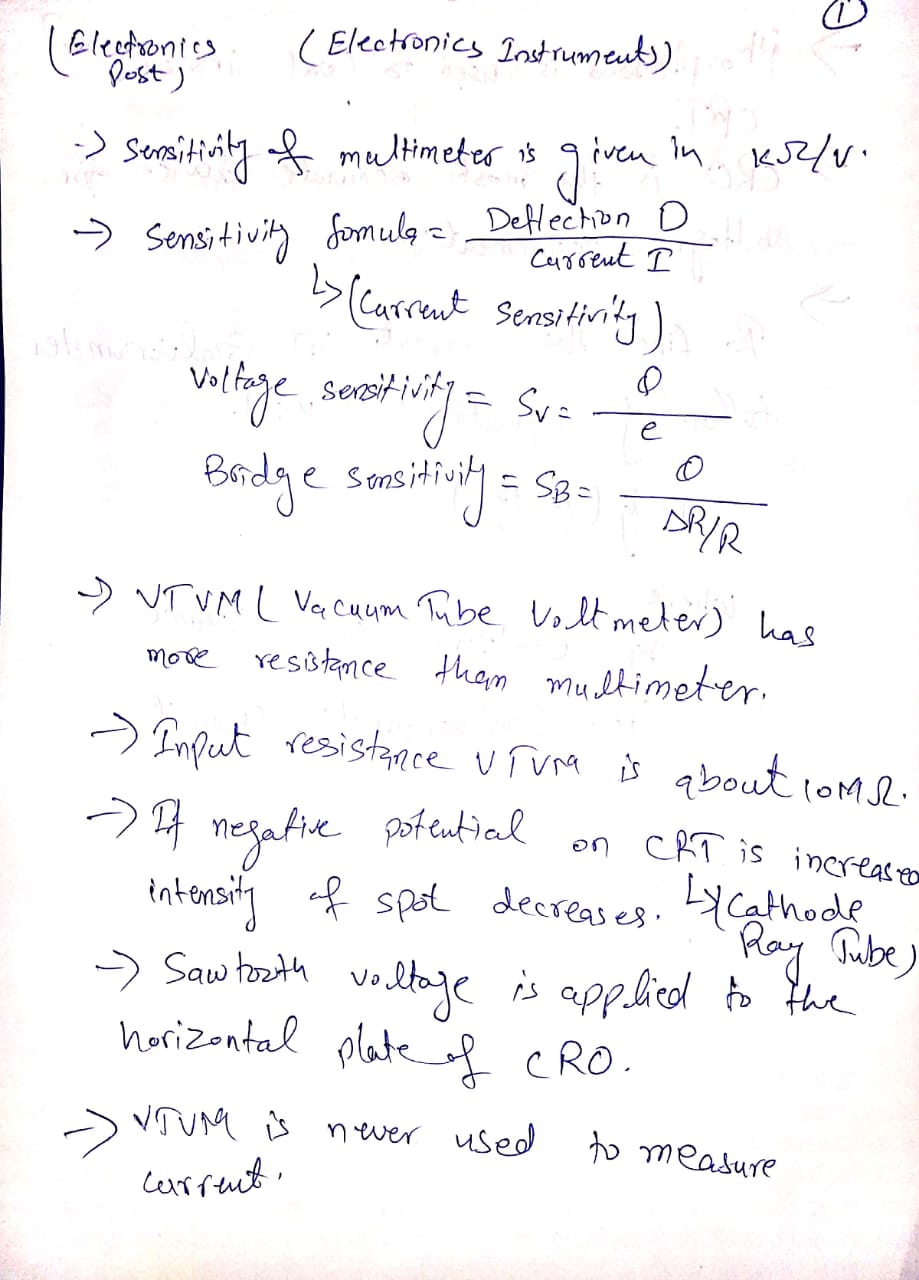 ①
(Electronics Post) (Electronics Instruments))
-> Sensitivity of multimeter is given in kΩ/v.
-> Sensitivity fomula = Deflection D / Current I
↳ (Current Sensitivity)
Voltage sensitivity = Sv = θ / e
Bridge sensitivity = SB = θ / ΔR/R
-> VTVM ( Vacuum Tube Voltmeter) has
more resistance than multimeter.
-> Input resistance VTVM is about 10MΩ.
-> If negative potential on CRT is increased
intensity of spot decreases. ↳ (Cathode
Ray Tube)
-> Sawtooth voltage is applied to the
horizontal plate of CRO.
-> VTVM is never used to measure
current.